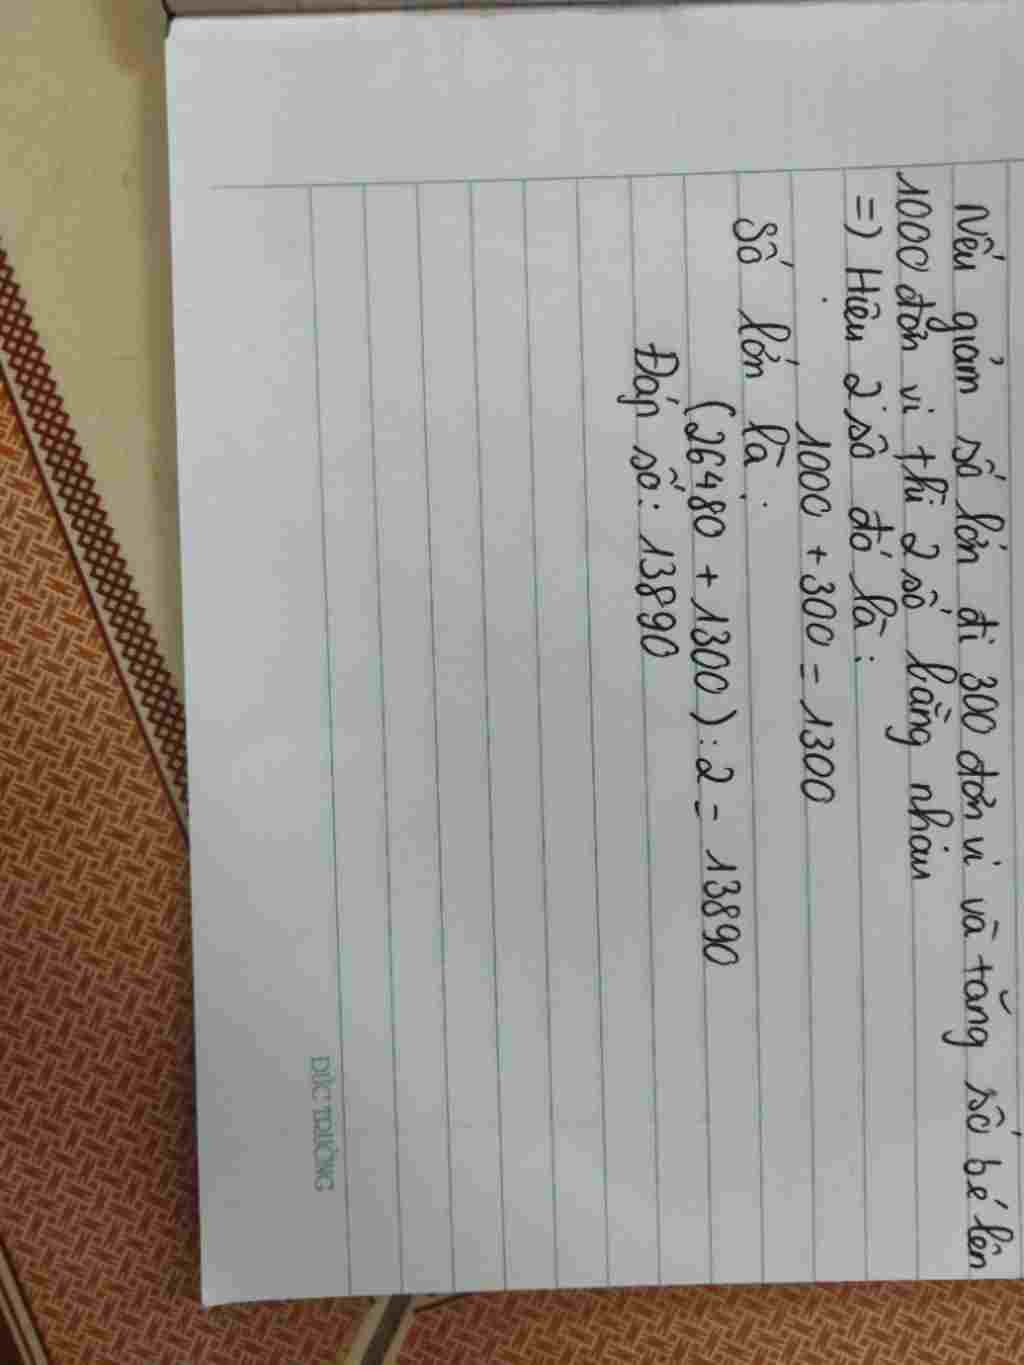 Nếu giảm số lớn đi 300 đơn vi và tăng số bé lên
1000 đơn vi thì 2 số bằng nhau
=) Hiệu 2 số đó là:
1000 + 300 = 1300
Số lớn là:
(26480 + 1300) : 2 = 13890
Đáp số: 13890
ĐỨC TRƯỜNG